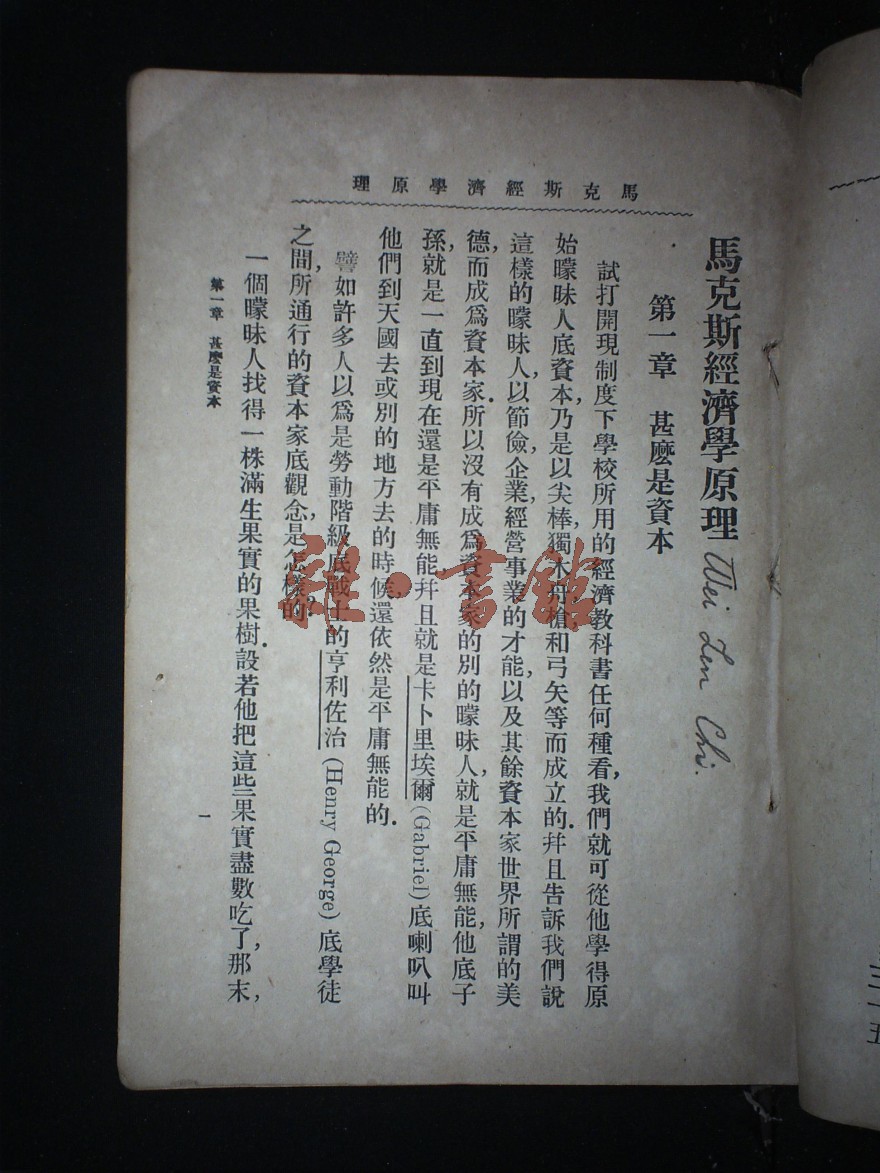 馬克斯經濟學原理
馬克斯經濟學原理
Wei Zen Chi.
第一章 甚麼是資本
試打開現制度下學校所用的經濟教科書任何種看,我們就可從他學得原
始曚昧人底資本,乃是以尖棒,獨木舟,槍和弓矢等而成立的.幷且告訴我們說
這樣的曚昧人,以節儉,企業,經營事業的才能,以及其餘資本家世界所謂的美
德,而成爲資本家.所以沒有成爲資本家的別的曚昧人,就是平庸無能,他底子
孫,就是一直到現在還是平庸無能,幷且就是卡卜里埃爾(Gabriel)底喇叭叫
他們到天國去或別的地方去的時候,還依然是平庸無能的.
譬如許多人以爲是勞動階級底戰士的亨利佐治(Henry George)底學徒
之間,所通行的資本家底觀念,是怎樣的?
一個曚昧人找得一株滿生果實的果樹.設若他把這些果實盡數吃了,那末,
第一章 甚麼是資本
一
雜·書館